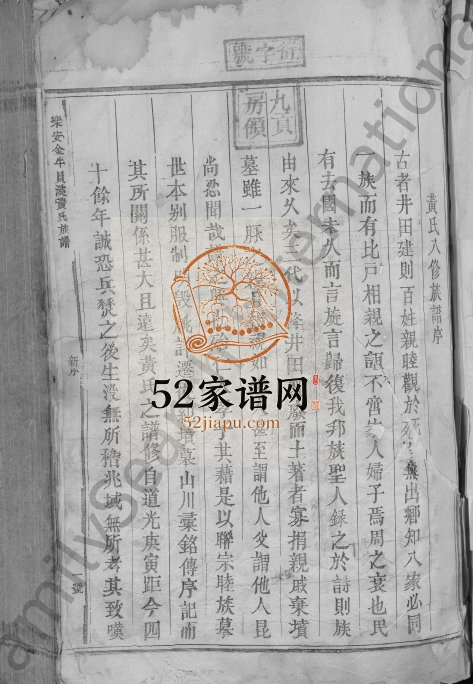 衍字號
九貢
房領
黃氏八修族譜序
古者井田建則百姓親睦觀於死徙無出鄉知八家必同
一族而有比戶相親之誼不啻家人婦子焉周之衰也民
有去國未久而言旋言歸復我邦族聖人錄之於詩則族
由來久矣三代以降井田 族而土著者寡捐親戚棄墳
墓雖一脉 親如 甚至謂他人父謂他人昆
尚忍聞哉 其藉是以聯宗睦族墓
世本别服制 遷 墳墓山川彙銘傳序記而
其所關係甚大且遠矣黃氏之譜修自道光庚寅距今四
十餘年誠恐兵燹之後生没無所稽兆域無所考其致嘆
樂安金牛員淺黃氏族譜
新序
一號
52家谱网
52jiapu.com
amilySearch International